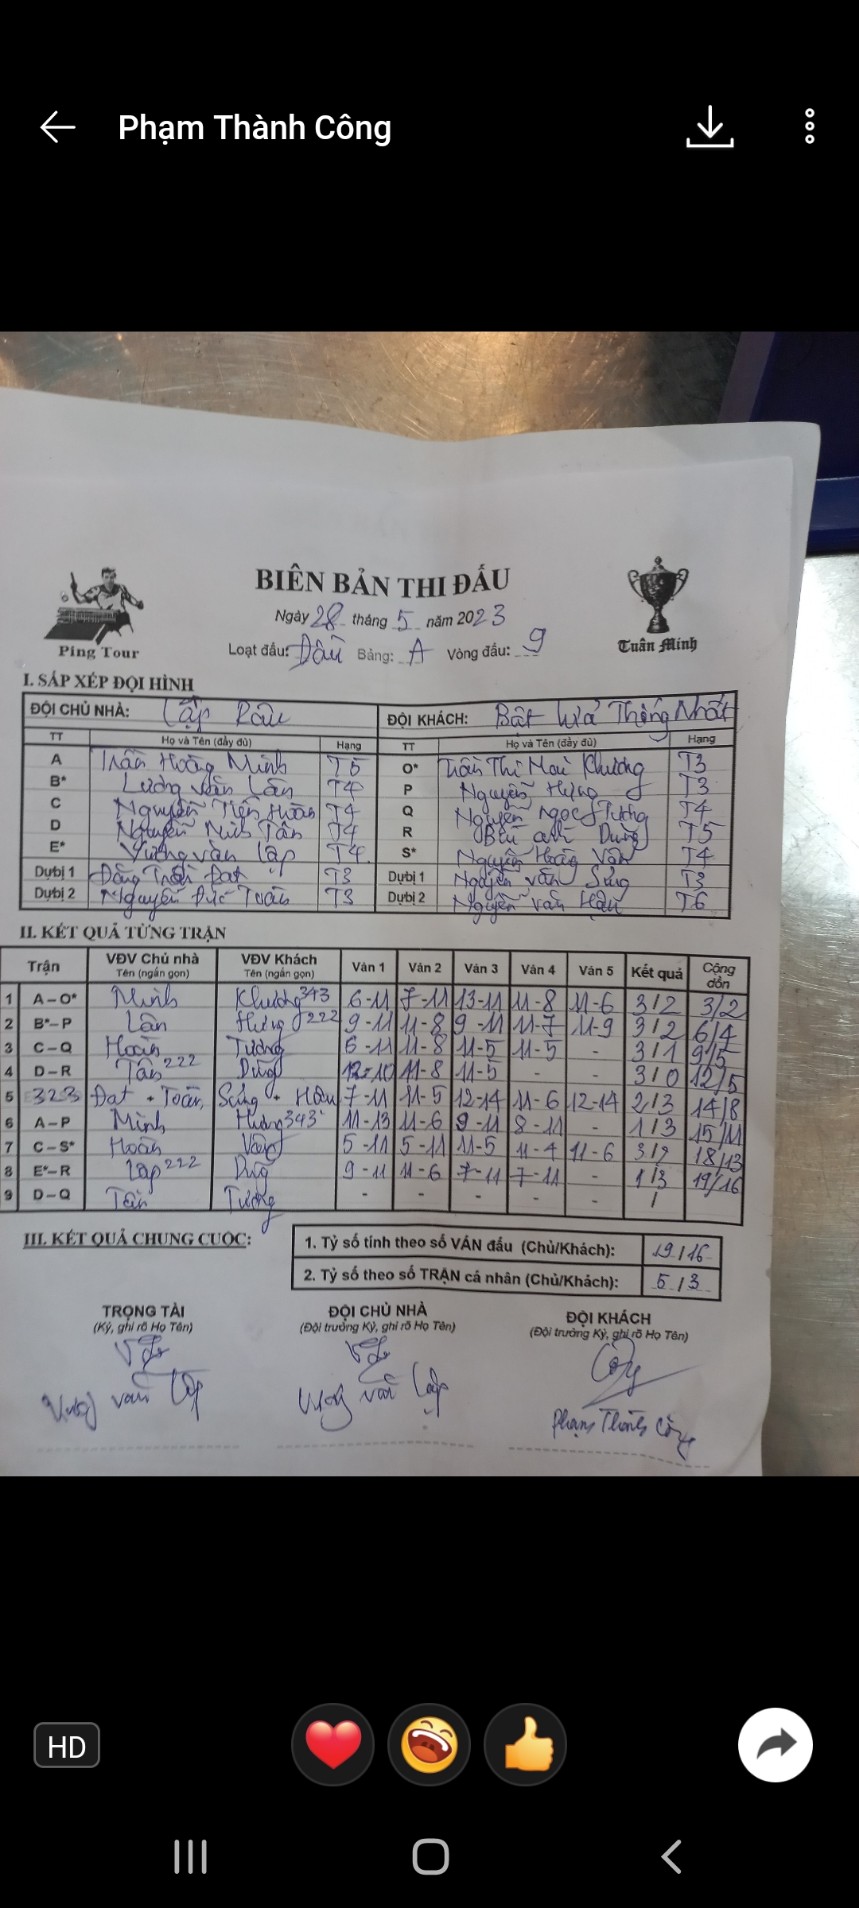 Phạm Thành Công
BIÊN BẢN THI ĐẤU
Ngày 28 tháng 5 năm 2023
Ping Tour
Loạt đấu: Đấu Bảng: A Vòng đấu: 9
Tuấn Minh
I. SẮP XẾP ĐỘI HÌNH
ĐỘI CHỦ NHÀ: Lập Râu ĐỘI KHÁCH: Bật lửa Thống Nhất
TT Họ và Tên (đầy đủ) Hạng TT Họ và Tên (đầy đủ) Hạng
A Trần Hoàng Minh T5 O* Trần Thị Mai Khương T3
B* Lương Văn Lân T4 P Nguyễn Hưng T3
C Nguyễn Tiến Hoàn T4 Q Nguyễn Ngọc Tường T4
D Nguyễn Minh Tân T4 R Bùi Anh Dũng T5
E* Vương Văn Lập T4 S* Nguyễn Hoàng Vân T4
Dựbị 1 Đặng Trần Đạt T3 Dựbị 1 Nguyễn Văn Sứng T3
Dựbị 2 Nguyễn Đức Toàn T3 Dựbị 2 Nguyễn Văn Hậu T6
II. KẾT QUẢ TỪNG TRẬN
Trận VĐV Chủ nhà Tên (ngắn gọn) VĐV Khách Tên (ngắn gọn) Ván 1 Ván 2 Ván 3 Ván 4 Ván 5 Kết quả Cộng dồn
1 A – O* Minh Khương 343 6-11 7-11 13-11 11-8 11-6 3/2 3/2
2 B*– P Lân Hưng 222 9-11 11-8 9-11 11-7 11-9 3/2 6/4
3 C – Q Hoàn Tường 6-11 11-8 11-5 11-5 - 3/1 9/5
4 D – R Tân 222 Dũng 12-10 11-8 11-5 - - 3/0 12/5
5 323 Đạt + Toàn, Sứng + Hậu 7-11 11-5 12-14 11-6 12-14 2/3 14/8
6 A – P Minh Hưng 343 11-13 11-6 9-11 8-11 - 1/3 15/11
7 C – S* Hoàn Vân 5-11 5-11 11-5 11-4 11-6 3/2 18/13
8 E*– R Lập 222 Dũg 9-11 11-6 7-11 7-11 - 1/3 19/16
9 D – Q Tân Tường - - - - - /
III. KẾT QUẢ CHUNG CUỘC:
1. Tỷ số tính theo số VÁN đấu (Chủ/Khách): 19/16
2. Tỷ số theo số TRẬN cá nhân (Chủ/Khách): 5/3
TRỌNG TÀI ĐỘI CHỦ NHÀ ĐỘI KHÁCH
(Ký, ghi rõ Họ Tên) (Đội trưởng Ký, ghi rõ Họ Tên) (Đội trưởng Ký, ghi rõ Họ Tên)
Vương Văn Lập Vương Văn Lập Phạm Thành Công
HD